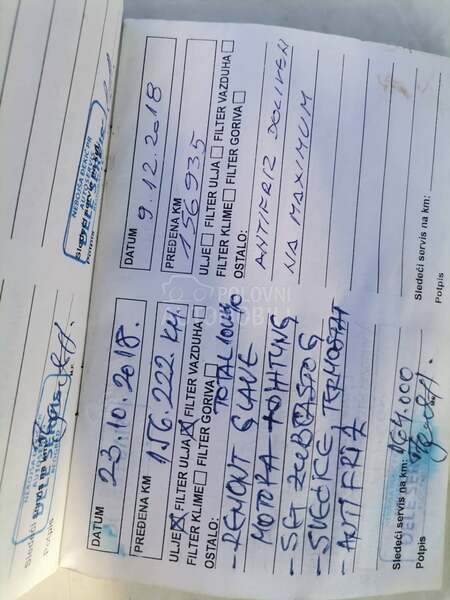 DATUM
23.10.2018.
PREĐENA KM
156.222 KM.
ULJE FILTER ULJA FILTER VAZDUHA
FILTER KLIME FILTER GORIVA
OSTALO: TOTAL 10W40
- REMONT GLAVE
MOTORA +
- SET ZUPČASTOG
- SVEĆICE TERMOSTAT
- ANTIFRIZ
Sledeći servis na km: 164.000
Potpis
DATUM
9.12.2018
PREĐENA KM
156935
ULJE FILTER ULJA FILTER VAZDUHA
FILTER KLIME FILTER GORIVA
OSTALO:
ANTIFRIZ DOLIVEN
NA MAXIMUM
Sledeći servis na km:
Potpis
Sledeći
Potpis
Sledeći
Potpis
POLOVNI
AUTOMOBILI